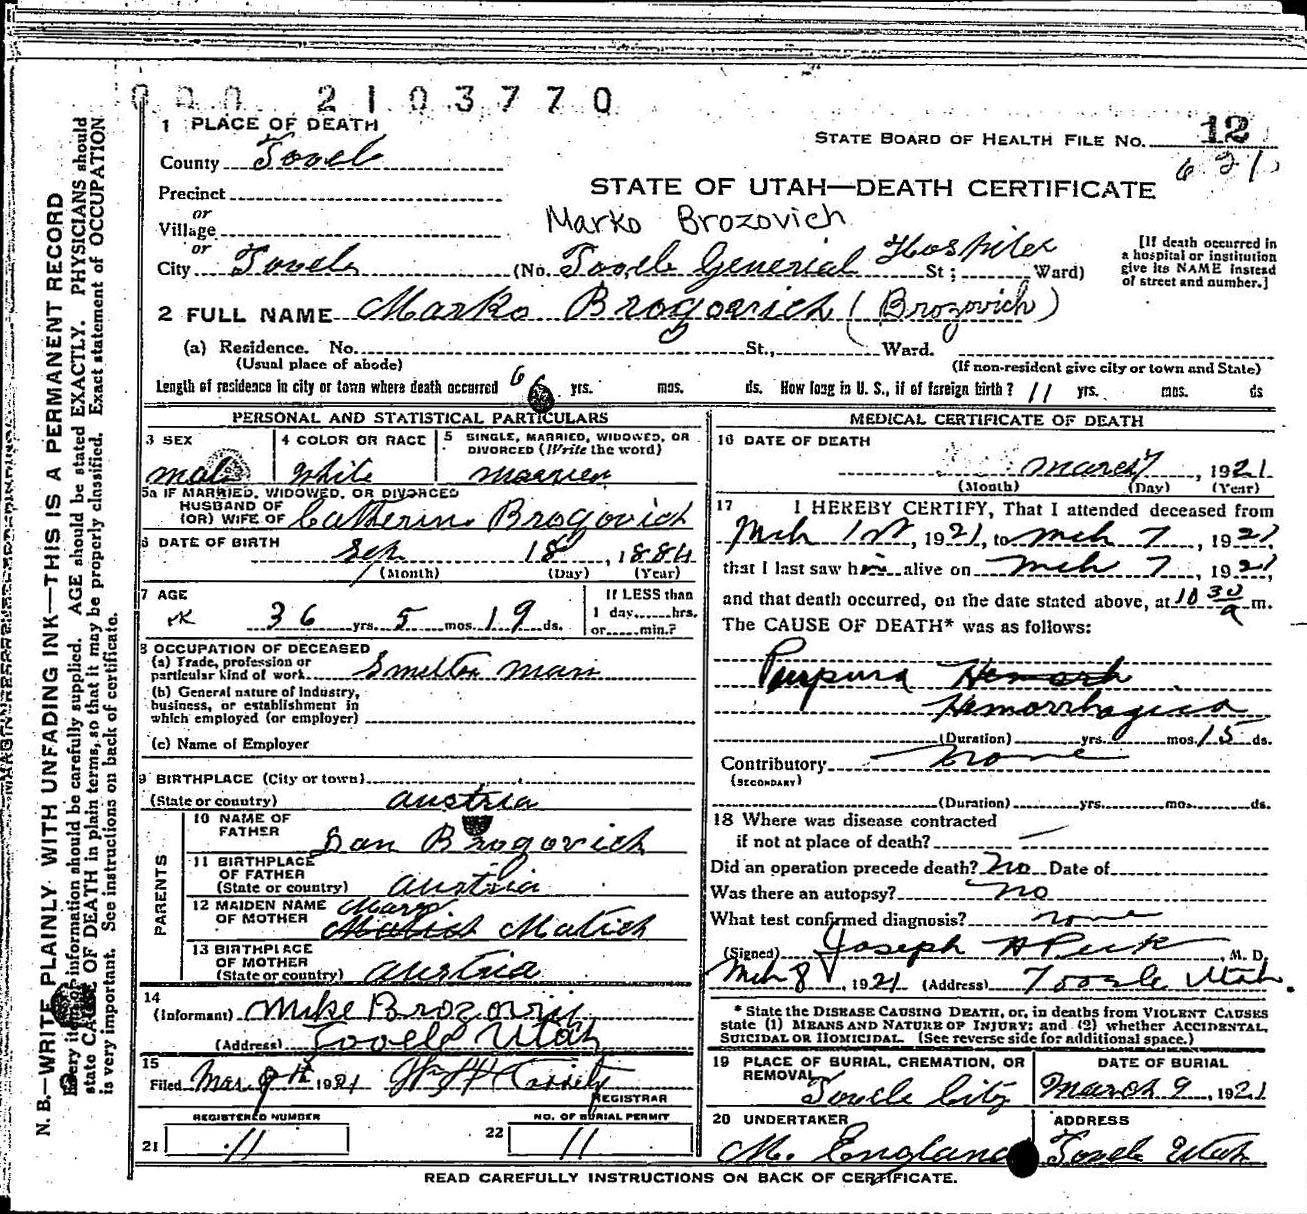 000 2103770
1 PLACE OF DEATH
STATE BOARD OF HEALTH FILE NO. 12
621
County Tooele
STATE OF UTAH—DEATH CERTIFICATE
Precinct
or
Village
Marko Brozovich
or
City Tooele (No. Tooele General Hospital St; Ward)
[If death occurred in a hospital or institution give its NAME instead of street and number.]
2 FULL NAME Marko Brogovich (Brozovich)
(a) Residence. No. St., Ward.
(Usual place of abode) (If non-resident give city or town and State)
Length of residence in city or town where death occurred 6 yrs. mos. ds. How long in U. S., if of foreign birth? 11 yrs. mos. ds
PERSONAL AND STATISTICAL PARTICULARS
3 SEX
male
4 COLOR OR RACE
White
5 SINGLE, MARRIED, WIDOWED, OR DIVORCED (Write the word)
married
5a IF MARRIED, WIDOWED, OR DIVORCED
HUSBAND OF
(OR) WIFE OF Catherine Brogovich
6 DATE OF BIRTH
Sep 18, 1884
(Month) (Day) (Year)
7 AGE
36 yrs. 5 mos. 19 ds.
If LESS than
1 day, hrs.
or min.?
8 OCCUPATION OF DECEASED
(a) Trade, profession or
particular kind of work Smelter man
(b) General nature of industry,
business, or establishment in
which employed (or employer)
(c) Name of Employer
9 BIRTHPLACE (City or town)
(State or country) Austria
PARENTS
10 NAME OF
FATHER Dan Brogovich
11 BIRTHPLACE
OF FATHER
(State or country) Austria
12 MAIDEN NAME
OF MOTHER Mary
Matich
13 BIRTHPLACE
OF MOTHER
(State or country) Austria
14
(Informant) Mike Brozovij
(Address) Tooele Utah.
15
Filed Mar 9th 1921 REGISTRAR
REGISTERED NUMBER
21 11
NO. OF BURIAL PERMIT
22 11
MEDICAL CERTIFICATE OF DEATH
16 DATE OF DEATH
March 7, 1921
(Month) (Day) (Year)
17 I HEREBY CERTIFY, That I attended deceased from
Mch 1st, 1921, to Mch 7, 1921,
that I last saw him alive on Mch 7, 1921,
and that death occurred, on the date stated above, at 10 30 a m.
The CAUSE OF DEATH* was as follows:
Purpura Hemorh
Hemorrhagica
(Duration) yrs. mos. 15 ds.
Contributory None
(SECONDARY)
(Duration) yrs. mos. ds.
18 Where was disease contracted
if not at place of death?
Did an operation precede death? No Date of
Was there an autopsy? No
What test confirmed diagnosis? None
(Signed) Joseph H Peck, M. D.
Mch 8, 1921 (Address) Tooele Utah.
* State the DISEASE CAUSING DEATH, or, in deaths from VIOLENT CAUSES
state (1) MEANS AND NATURE OF INJURY; and (2) whether ACCIDENTAL,
SUICIDAL OR HOMICIDAL. (See reverse side for additional space.)
19 PLACE OF BURIAL, CREMATION, OR
REMOVAL
Tooele City
DATE OF BURIAL
March 9, 1921
20 UNDERTAKER
M. England
ADDRESS
Tooele Utah
READ CAREFULLY INSTRUCTIONS ON BACK OF CERTIFICATE.
N. B.—WRITE PLAINLY WITH UNFADING INK—THIS IS A PERMANENT RECORD
Every item of information should be carefully supplied. AGE should be stated EXACTLY. PHYSICIANS should
state CAUSE OF DEATH in plain terms, so that it may be properly classified. Exact statement of OCCUPATION
is very important. See instructions on back of certificate.